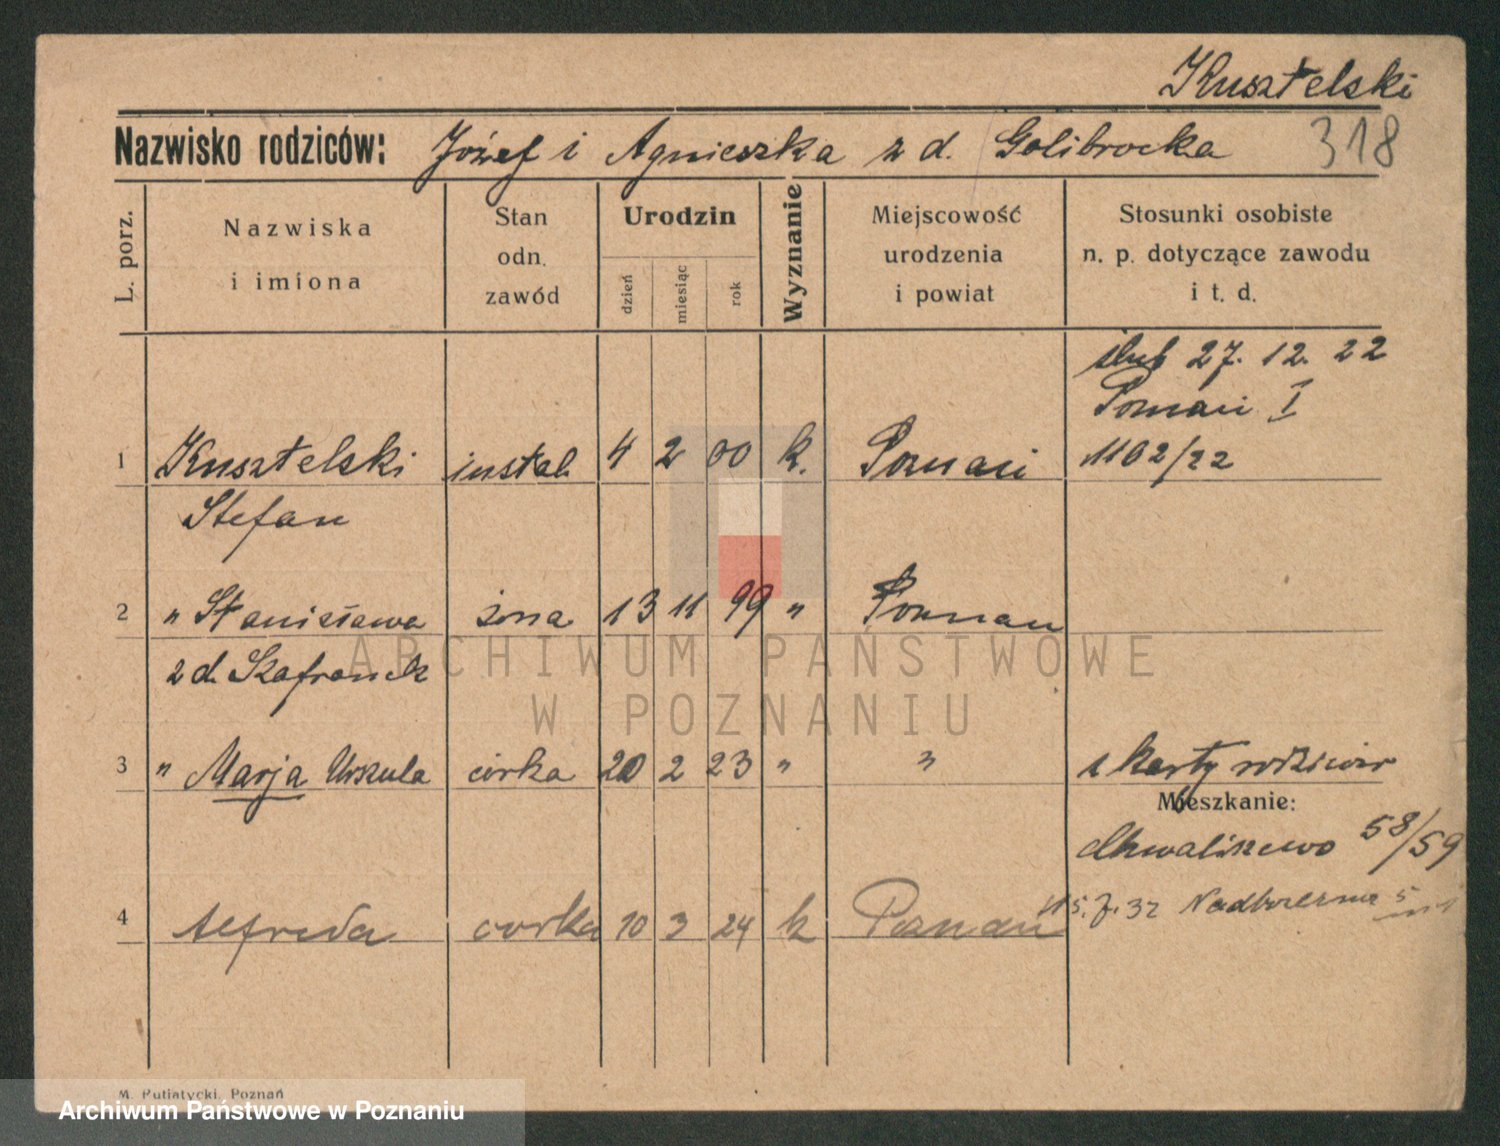 Kusztelski
Nazwisko rodziców: Józef i Agnieszka z d. Golibrocka 318
L. porz.
Nazwiska
i imiona
Stan
odn.
zawód
Urodzin
dzień
miesiąc
rok
Wyznanie
Miejscowość
urodzenia
i powiat
Stosunki osobiste
n. p. dotyczące zawodu
i t. d.
ślub 27. 12. 22
Poznań I
1 Kusztelski instal. 4 2 00 k. Poznań 1102/22
Stefan
2 " Stanisława żona 13 11 99 " Poznań
z d. Szafranek
3 " Marja Urszula córka 20 2 23 " " z karty rodziców
Mieszkanie:
Chwaliszewo 58/59
15.7.32 Nadbrzeżna 5
4 Alfreda córka 10 3 24 k Poznań
M. Putiatycki, Poznań
ARCHIWUM PAŃSTWOWE
W POZNANIU
Archiwum Państwowe w Poznaniu